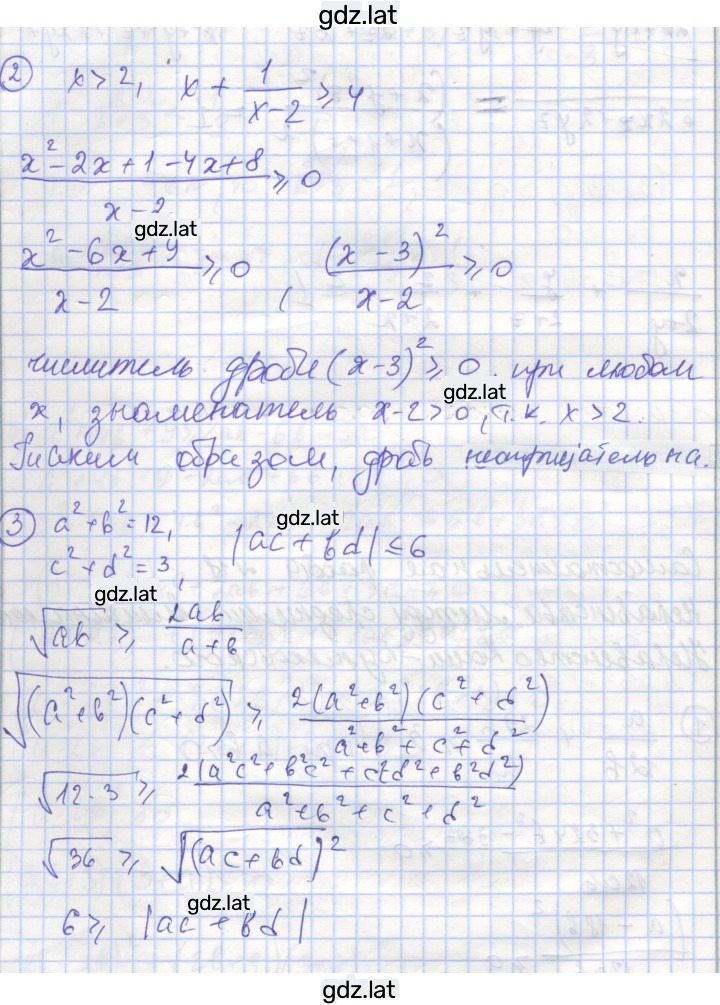 gdz.lat
② x > 2, x + 1/(x-2) ≥ 4
(x² - 2x + 1 - 4x + 8)/(x-2) ≥ 0
gdz.lat
(x² - 6x + 9)/(x-2) ≥ 0 , (x-3)²/(x-2) ≥ 0
числитель дроби (x-3)² ≥ 0 при любом
gdz.lat
x, знаменатель x-2 > 0, т.к. x > 2.
Таким образом, дробь неотрицательна.
③ a² + b² = 12, |ac + bd| ≤ 6
gdz.lat
c² + d² = 3,
gdz.lat
√ab ≥ 2ab/(a+b)
√((a²+b²)(c²+d²)) ≥ 2(a²+b²)(c²+d²)/(a²+b²+c²+d²)
√(12·3) ≥ 2(a²c²+b²c²+c²d²+b²d²)/(a²+b²+c²+d²)
√36 ≥ √(ac+bd)²
gdz.lat
6 ≥ |ac + bd|
gdz.lat